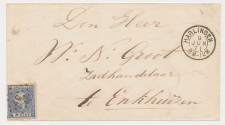 Den Heer
W. D. Groot
Zaadhandelaar
te Enkhuizen
HARLINGEN
9
JUN